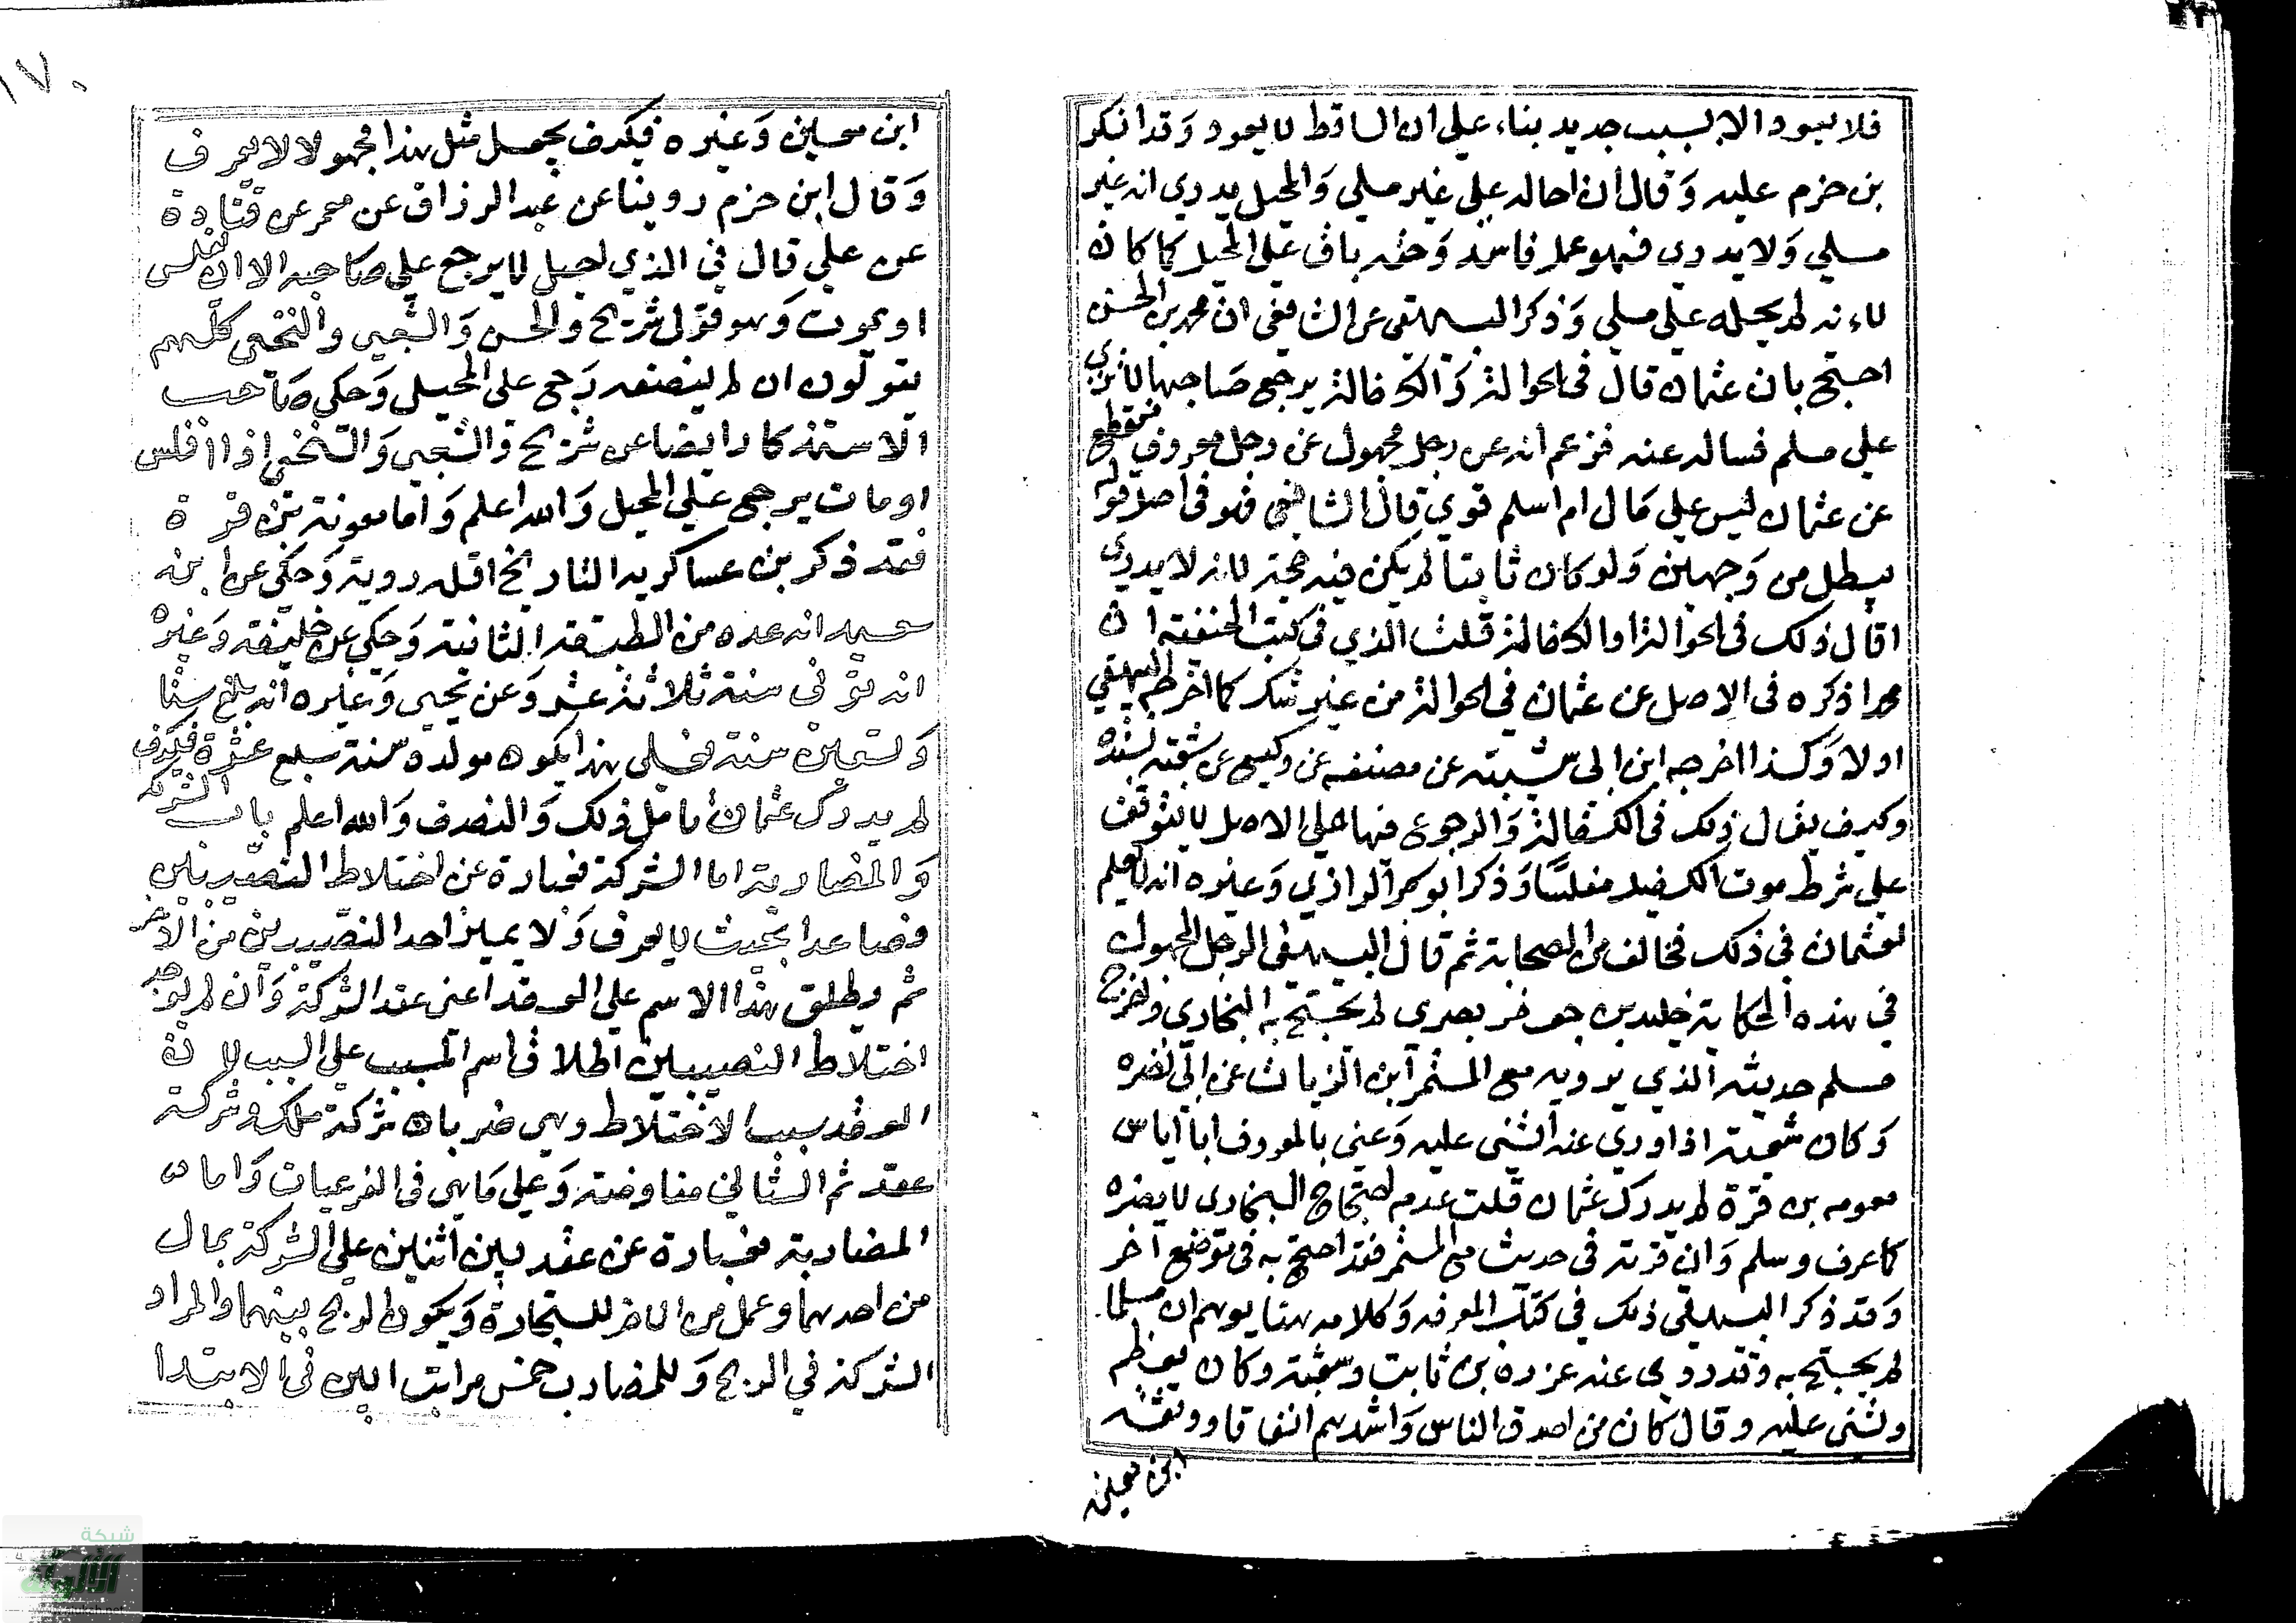 فلا يعود الا بسبب جديد بناء علي ان الساقط لا يعود وقد انكر
بن حزم عليه وقال ان احاله علي غير ملي والمحيل يدري انه غير
ملي ولا يدري فهو عمل فاسد وحقه باق علي المحيل كما كان
لاءنه لم يحيله علي ملي وذكر البيهقي عن الشافعي ان محمد بن الحسن
احتج بان عثمان قال في الحوالة والكفالة يرجع صاحبها لاتوي
علي مسلم فساله عنه فزعم انه عن رجل مجهول عن رجل معروف منقطع
عن عثمان ليس علي مال ام اسلم توي قال الشافعي فهو في اصل قوله
يبطل من وجهين ولو كان ثابتا لم يكن فيه حجة لانه لا يدري
اقال ذلك في الحوالة او الكفالة قلت الذي في كتب الحنفية ان
محمدا ذكره في الاصل عن عثمان في الحوالة من غير شك كما اخرجه البيهقي
اولا وكذا اخرجه ابن ابي شيبته عن مصنفه عن وكيع عن شعبة بسنده
وكيف يقال ذلك في الكفالة والرجوع فيها علي الاصل لا يتوقف
علي شرط موت الكفيل مفلسا وذكر ابو بكر الرازي وغيره انه لا يعلم
لعثمان في ذلك مخالف من الصحابة ثم قال البيهقي الرجل المجهول
في هذه الحكاية خليد بن جعفر بصري لم يحتج به البخاري واخرج
مسلم حديثه الذي يرويه مع المستمر ابن الريات عن ابي نضره
وكان شعبة اذا روي عنه اثني عليه وعني بالمعروف ابا اياس
معويه بن قرة لم يدرك عثمان قلت عدم احتجاج البخاري لا يضره
كما عرف ومسلم وان قرنه في حديث مع المستمر فقد احتج به في موضع آخر
وقد ذكر البيهقي ذلك في كتاب المعرفه وكلامه هنا يوهم ان مسلما
لم يحتج به وقد روي عنه عزره بن ثابت وشعبة وكان يعظمه
ويثني عليه وقال كان من اصدق الناس واشدهم اتفاقا ووثقه
ابن معين
١٧٠
ابن معين وغيره فكيف يجعل مثل هذا مجهولا لا يعرف
وقال ابن حزم روينا عن عبد الرزاق عن معمر عن قتادة
عن علي قال في الذي احيل لا يرجع علي صاحبه الا ان يفلس
او يموت وهو قول شريح والحسن والشعبي والنخعي كلهم
يقولون ان لم ينصفه رجع علي المحيل وحكي صاحب
الاستذكار ايضا عن شريح والشعبي والنخعي اذا افلس
او مات يرجع علي المحيل والله اعلم واما معوية بن قرة
فقد ذكر بن عساكر التاريخ اقله روية وحكي عن ابن
سعيد انه عده من الطبقة الثانية وحكي عن خليفه وغيره
انه توفي سنة ثلاثة عشر وعن يحيي وغيره انه بلغ ستا
وتسعين سنة فعلي هذا يكون مولده سنة سبع عشرة فكيف
لم يدرك عثمان تامل ذلك والنصرف والله اعلم باب الشركه
والمضاربة اما الشركة فعبارة عن اختلاط النصيبين
فصاعدا بحيث لا يعرف ولا يميز احد النصيبين من الاخر
ثم يطلق هذا الاسم علي العقد اعني عقد الشركة وان لم يوجد
اختلاط النصيبين اطلاق اسم المسبب علي السبب لان
العقد سبب الاختلاط وهي ضربان شركة ملك وشركة
عقد ثم الثاني مفاوضة وعلي ما هي في الفرعيات واما
المضاربة فعبارة عن عقد بين اثنين علي الشركة بمال
من احدهما وعمل من الاخر للتجارة ويكون الربح بينهما والمراد
الشركة في الربح وللمضارب خمس مراتب امين في الابتدا
شبكة
الألوكة